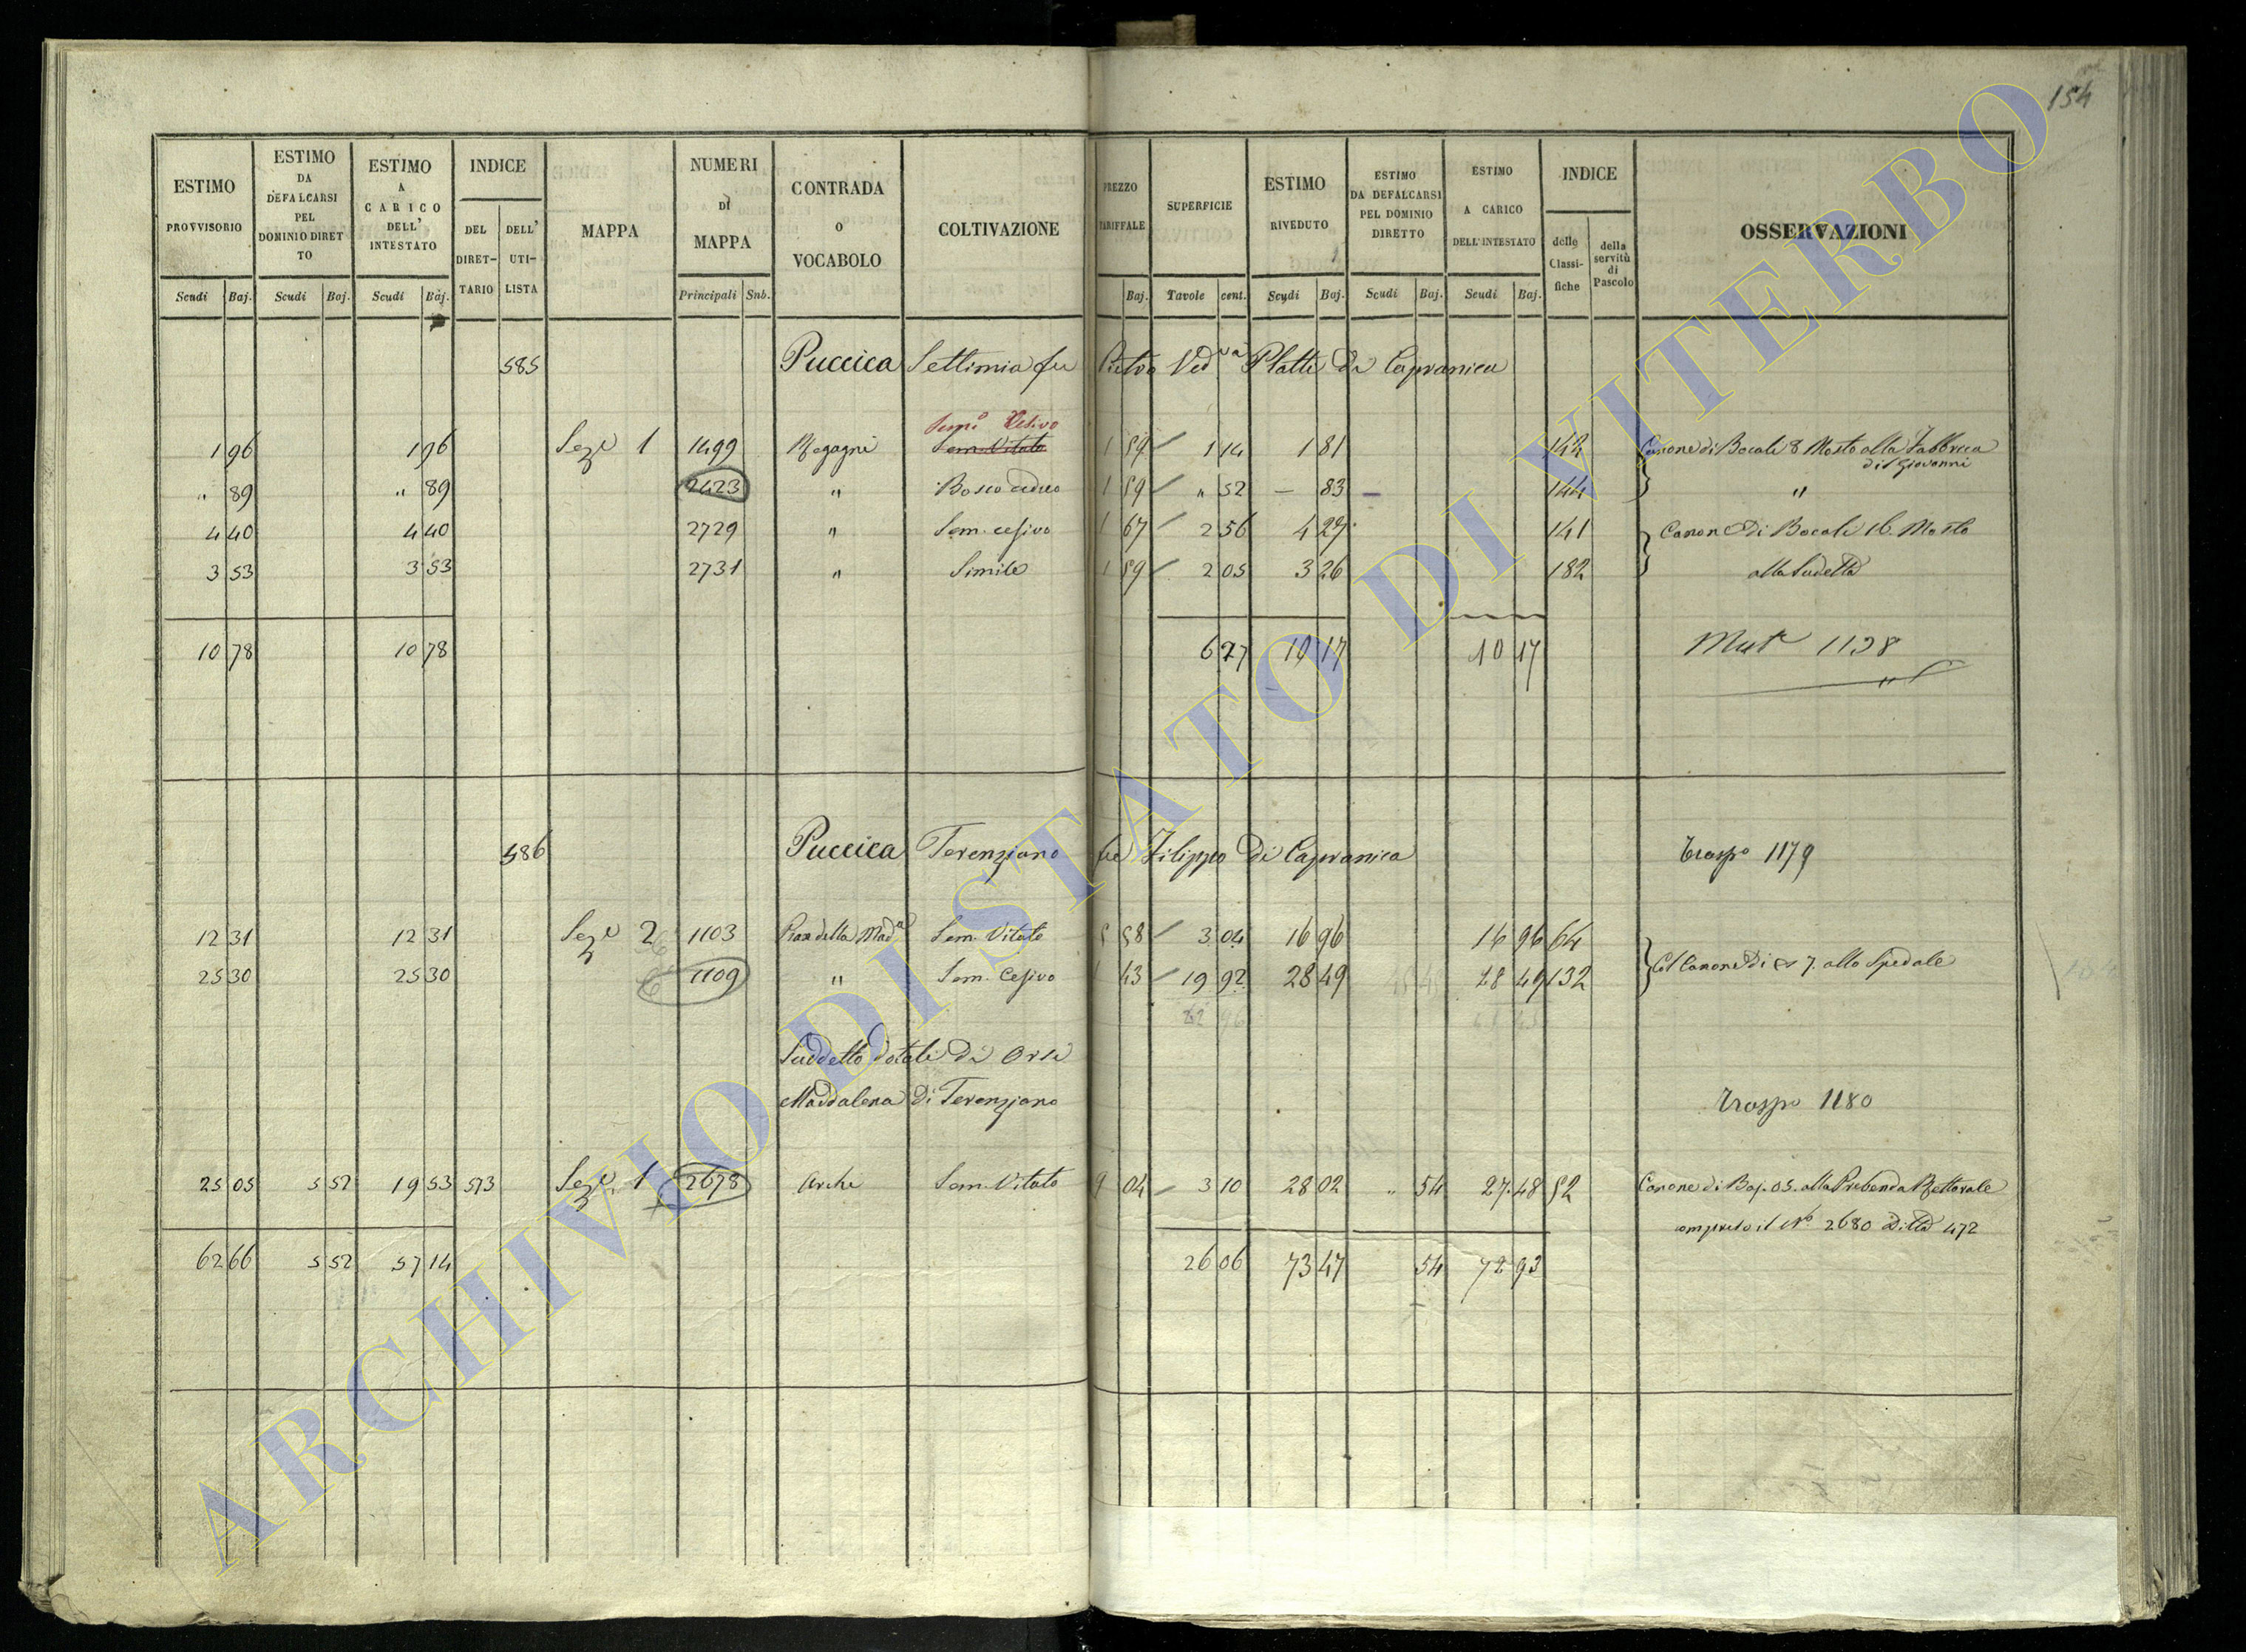 154
ESTIMO PROVVISORIO Scudi Baj.
ESTIMO DA DEFALCARSI PEL DOMINIO DIRETTO Scudi Baj.
ESTIMO A CARICO DELL' INTESTATO Scudi Baj.
INDICE DEL DIRET-TARIO DELL' UTI-LISTA
MAPPA
NUMERI DI MAPPA Principali Sub.
CONTRADA o VOCABOLO
COLTIVAZIONE
PREZZO TARIFFALE Baj.
SUPERFICIE Tavole cent.
ESTIMO RIVEDUTO Scudi Baj.
ESTIMO DA DEFALCARSI PEL DOMINIO DIRETTO Scudi Baj.
ESTIMO A CARICO DELL'INTESTATO Scudi Baj.
INDICE delle Classi-fiche della servitù di Pascolo
OSSERVAZIONI
585 Puccica Settimia fu Pietro Ved.va Platti Di Capranica
Sem.o Cesivo
1 96 1 96 Sez.e 1 1499 Sem. Vitato 1 59 1 14 1 81 142 Canone di Bocali 8 Mosto alla Fabbrica
di S Giovanni
" 89 " 89 2423 " Bosco ceduo 1 59 " 52 — 83 — 144 "
4 40 4 40 2729 " Sem. cesivo 1 67 2 56 4 27 141 Canone Di Bocali 16 Mosto
3 53 3 53 2731 " Simile 1 59 2 05 3 26 182 alla Sudetta
10 78 10 78 6 27 10 17 10 17 Mut.e 1138
586 Puccica Terenziano fu Filippo Di Capranica Trasp.o 1179
12 31 12 31 Sez.e 2 1103 Pian della Mad.a Sem. Vitato 5 58 3 04 16 96 16 96 64
25 30 25 30 1109 " Sem. Cesivo 1 43 19 92 28 49 28 49 132 Col Canone Di 7. allo Spedale
Suddetto dotali Di Orsi
Maddalena Di Terenziano Trasp.o 1180
25 05 5 52 19 53 573 Sez.e 1 2678 Archi Sem. Vitato 9 04 3 10 28 02 " 54 27.48 52 Canone di Baj. 05. alla Prebenda Rettorale
compreso il N.o 2680 Ditta 472
62 66 5 52 57 14 26 06 73 47 54 72 93
ARCHIVIO DI STATO DI VITERBO